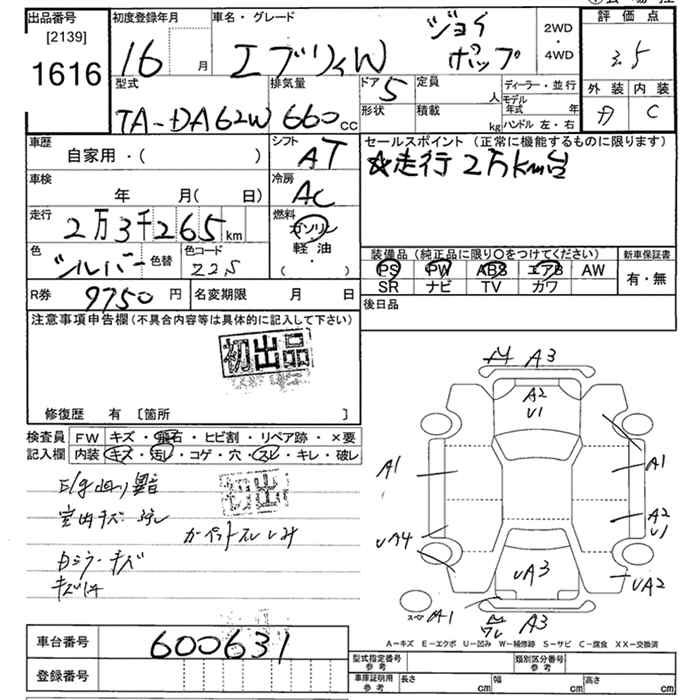 出品番号
[2139]
1616
初度登録年月
16 月
車名・グレード
エブリィW
ジョイ
ポップ
2WD
・
4WD
評価点
3.5
外装 内装
C
型式
TA-DA62W
排気量
660 cc
ドア
5
形状
定員
人
積載
kg
ディーラー・並行
モデル
年式 年
ハンドル 左・右
車歴
自家用・( )
シフト
AT
セールスポイント (正常に機能するものに限ります)
☆走行 2万km台
車検
年 月(日)
冷房
AC
走行
2万3千265 km
燃料
ガソリン
軽・油
・
( )
色
シルバー
色替
色コード
Z2S
装備品 (純正品に限り○をつけてください)
PS PW ABS エアB AW
SR ナビ TV カワ
新車保証書
有・無
R券 9750 円
名変期限 月 日
後日品
注意事項申告欄 (不具合内容等は具体的に記入して下さい)
初出品
修復歴 有 [箇所 ]
検査員 FW キズ・飛石・ヒビ割・リペア跡・×要
記入欄 内装 キズ・汚レ・コゲ・穴・スレ・キレ・破レ
初出
カーペットスレ
キズ
A3
A2
U1
A1
A1
A2
U1
UA4
UA3
UA2
スペア
A1
A3
A=キズ E=エクボ U=凹み W=補修跡 S=サビ C=腐食 XX=交換済
車台番号 600631
登録番号
型式指定番号
参考
類別区分番号
参考
車庫証明用
参考
長さ cm 幅 cm 高さ cm